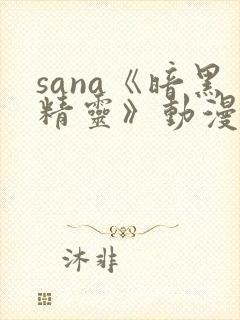 sana《暗黑
精靈》動漫
沐非